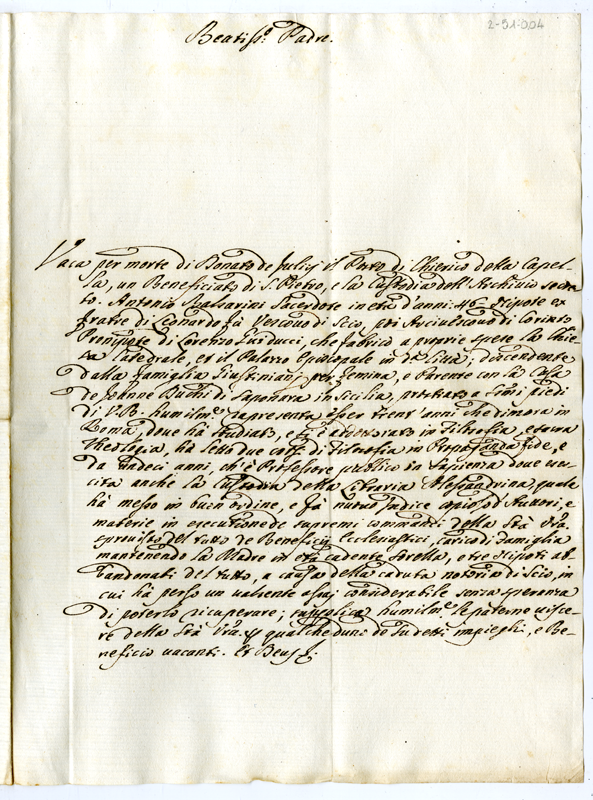 2-91-004
Beatiss.º Padre.
Vaca per morte di Donato de Julij il Posto di Chierico della Capel-
la, un Beneficiato di S. Pietro, e la Custodia dell'Archivio secre
to. Antonio Balsarini Sacerdote in età d'anni 46 Nipote ex
fratre di Leonardo già Vescovo di Scio, poi Arcivescovo di Corinto
Pronipote di Lorenzo, che fabricò a proprie spese la Chie-
sa Catedrale, et il Palazzo Episcopale in d.ª Città; descendente
dalla famiglia Giustiniani per femina, e Parente con la Casa
de in Sicilia, prostrato a S.mi piedi
di V.B. humilm.e rapresenta esser trent'anni che dimora in
Roma, dove hà studiato, e s'è addottorato in Filosofia, et sacra
Theologia, hà letto due corsi di Filosofia in Propaganda fide, e
da undeci anni, ch'è Professore publico in Sapienza dove eser-
cita anche la Custodia della Libraria Alessandrina, quale
hà messo in buon ordine, e fà nuovo Indice copioso d'Auttori, e
materie in esecutione de supremi commandi della Stà Vrã
sprovisto del tutto de Beneficij Ecclesiastici, carico di famiglia
mantenendo la Madre in età cadente, sorella, e tre Nipoti ab
bandonati del tutto, a causa della caduta notoria di Scio, in
cui hà perso un valsente assai considerabile senza speranza
di poterlo ricuperare; supplica humilm.e le paterne visce-
re della Stà Vrã qualcheduni de sudetti impieghi, e Be-
neficio vacanti. Et Deus